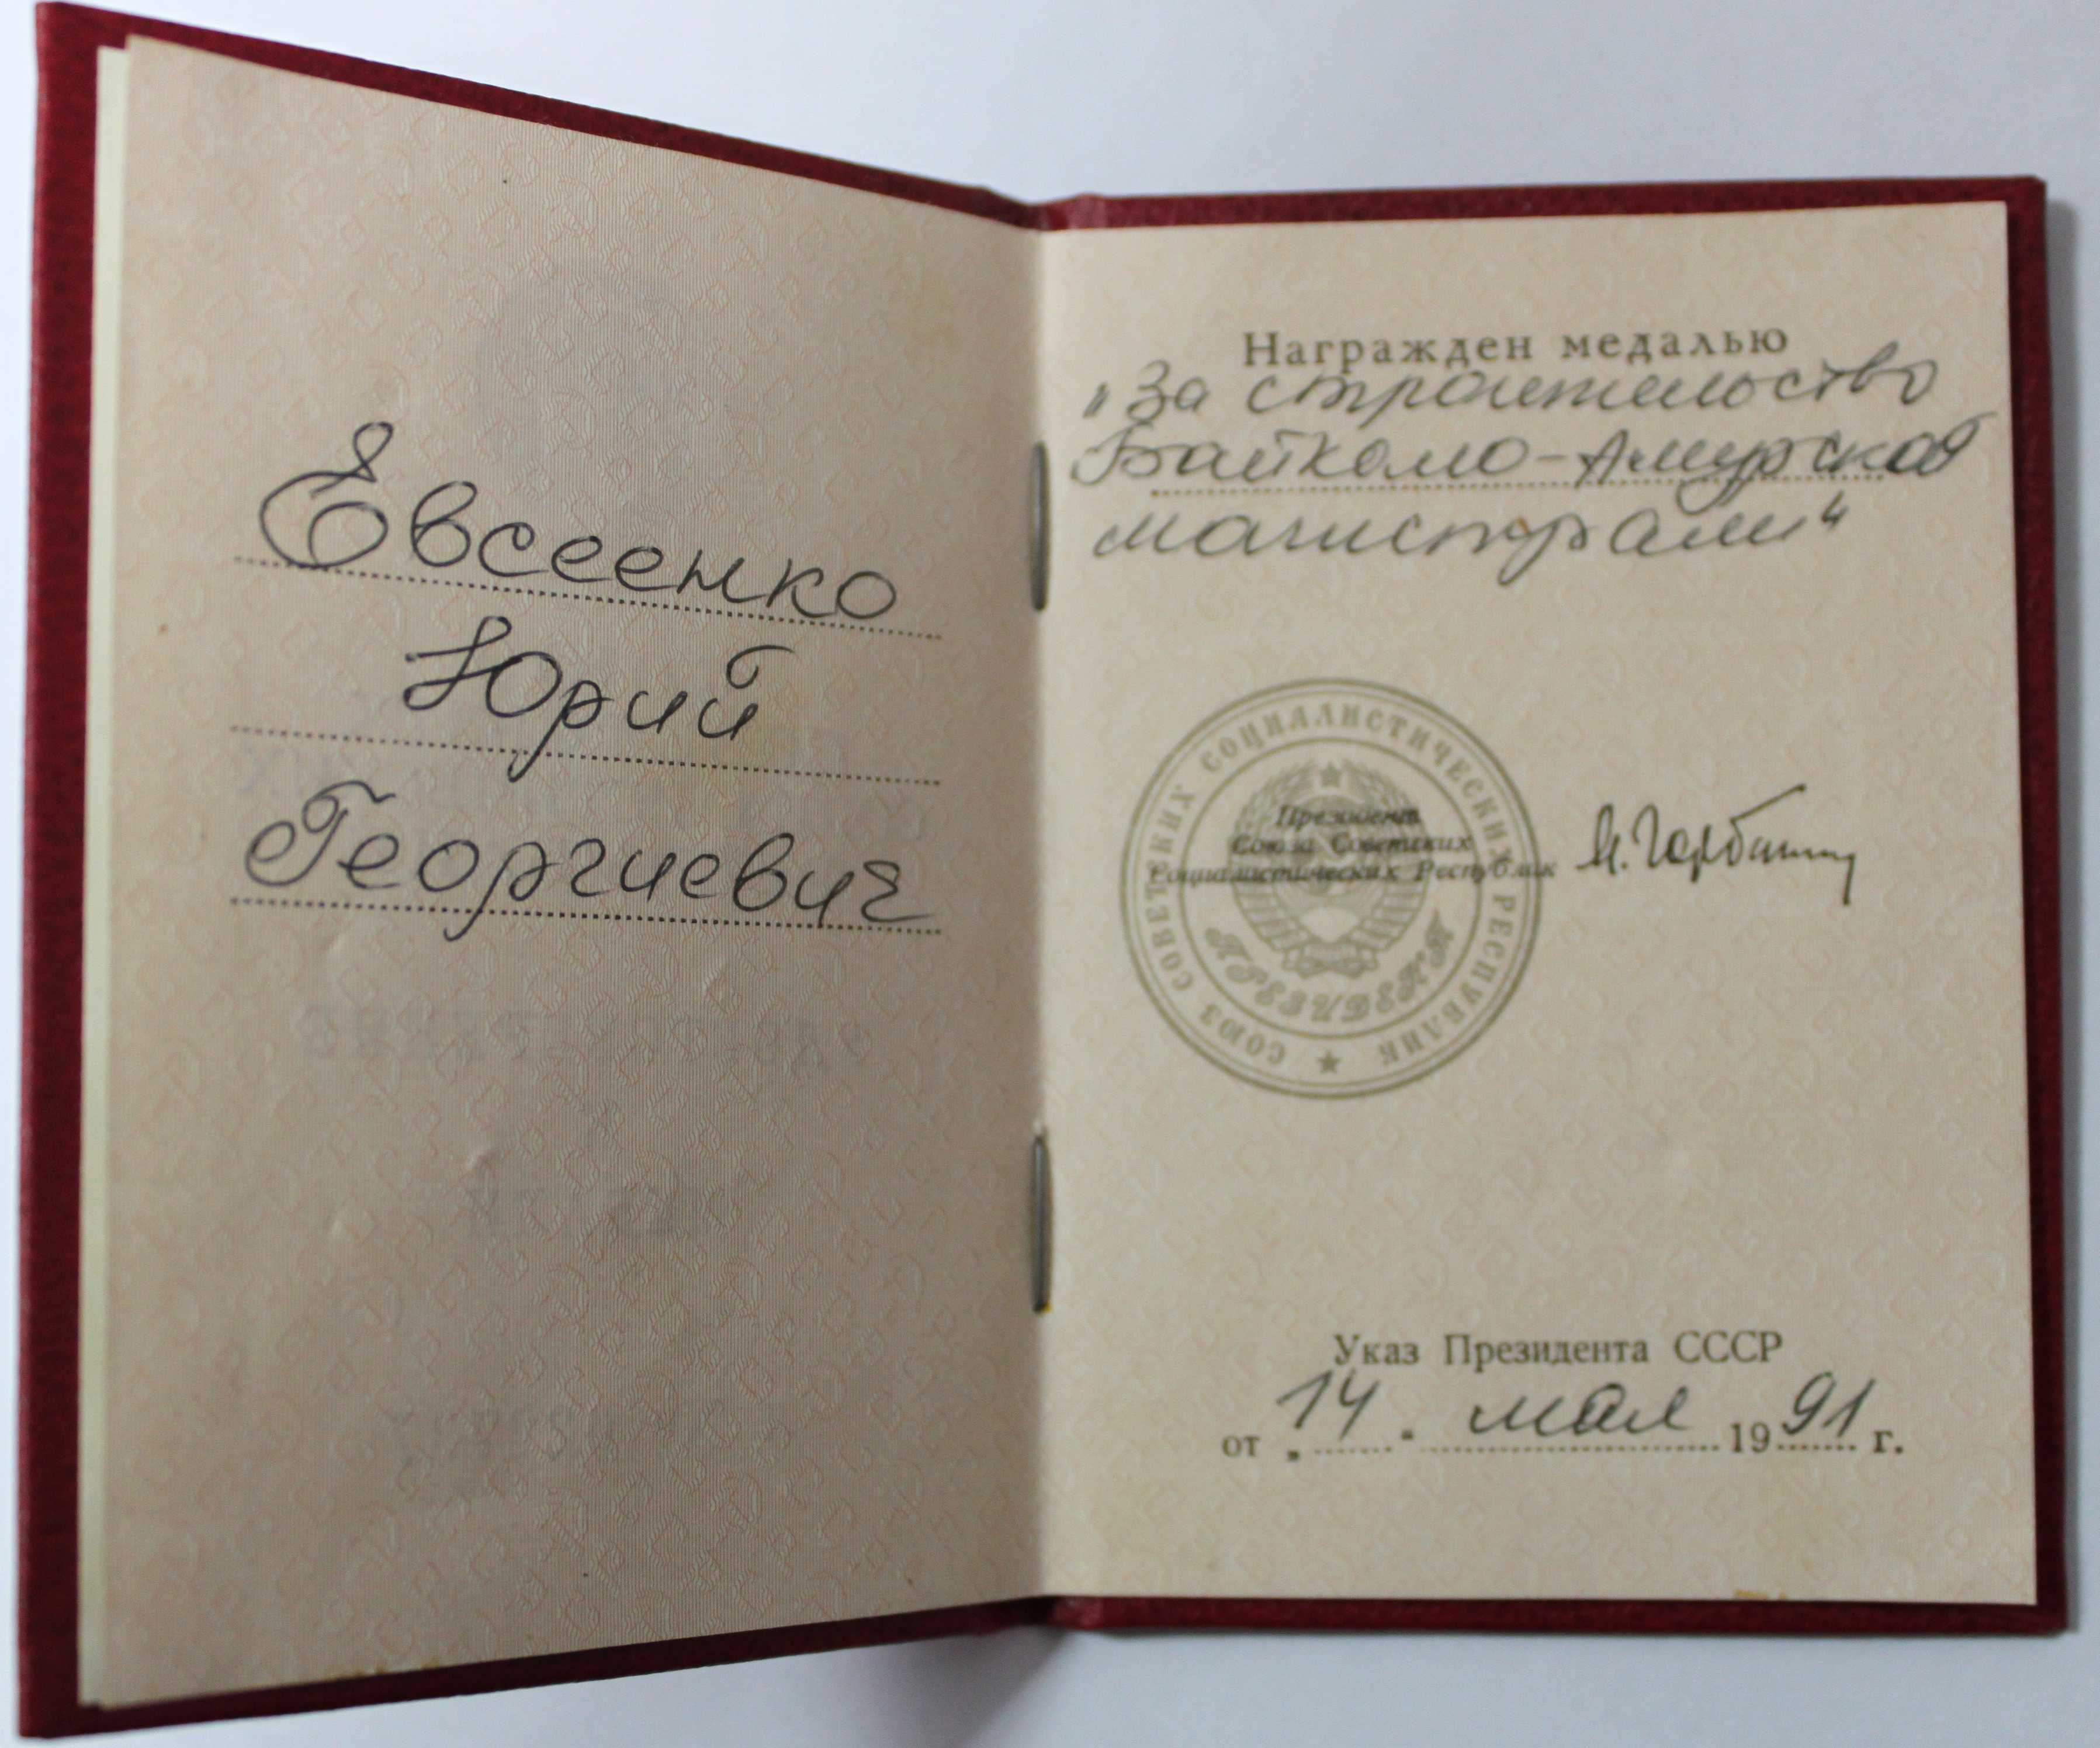 Евсеенко
Юрий
Георгиевич
Награжден медалью
„За строительство
Байкало-Амурской
магистрали“
СОЮЗ СОВЕТСКИХ СОЦИАЛИСТИЧЕСКИХ РЕСПУБЛИК
ПРЕЗИДЕНТ
Президент
Союза Советских
Социалистических Республик
М. Горбачев
Указ Президента СССР
от „14“ мая 1991 г.